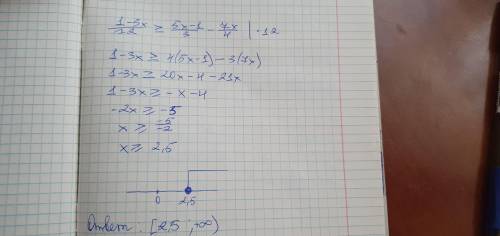 (1-3x)/12 ≥ (5x-1)/3 - 7x/4 | ·12
1-3x ≥ 4(5x-1)-3(7x)
1-3x ≥ 20x-4-21x
1-3x ≥ -x-4
-2x ≥ -5
x ≥ -5/-2
x ≥ 2,5
0 2,5
Ответ: [2,5 ;+∞)